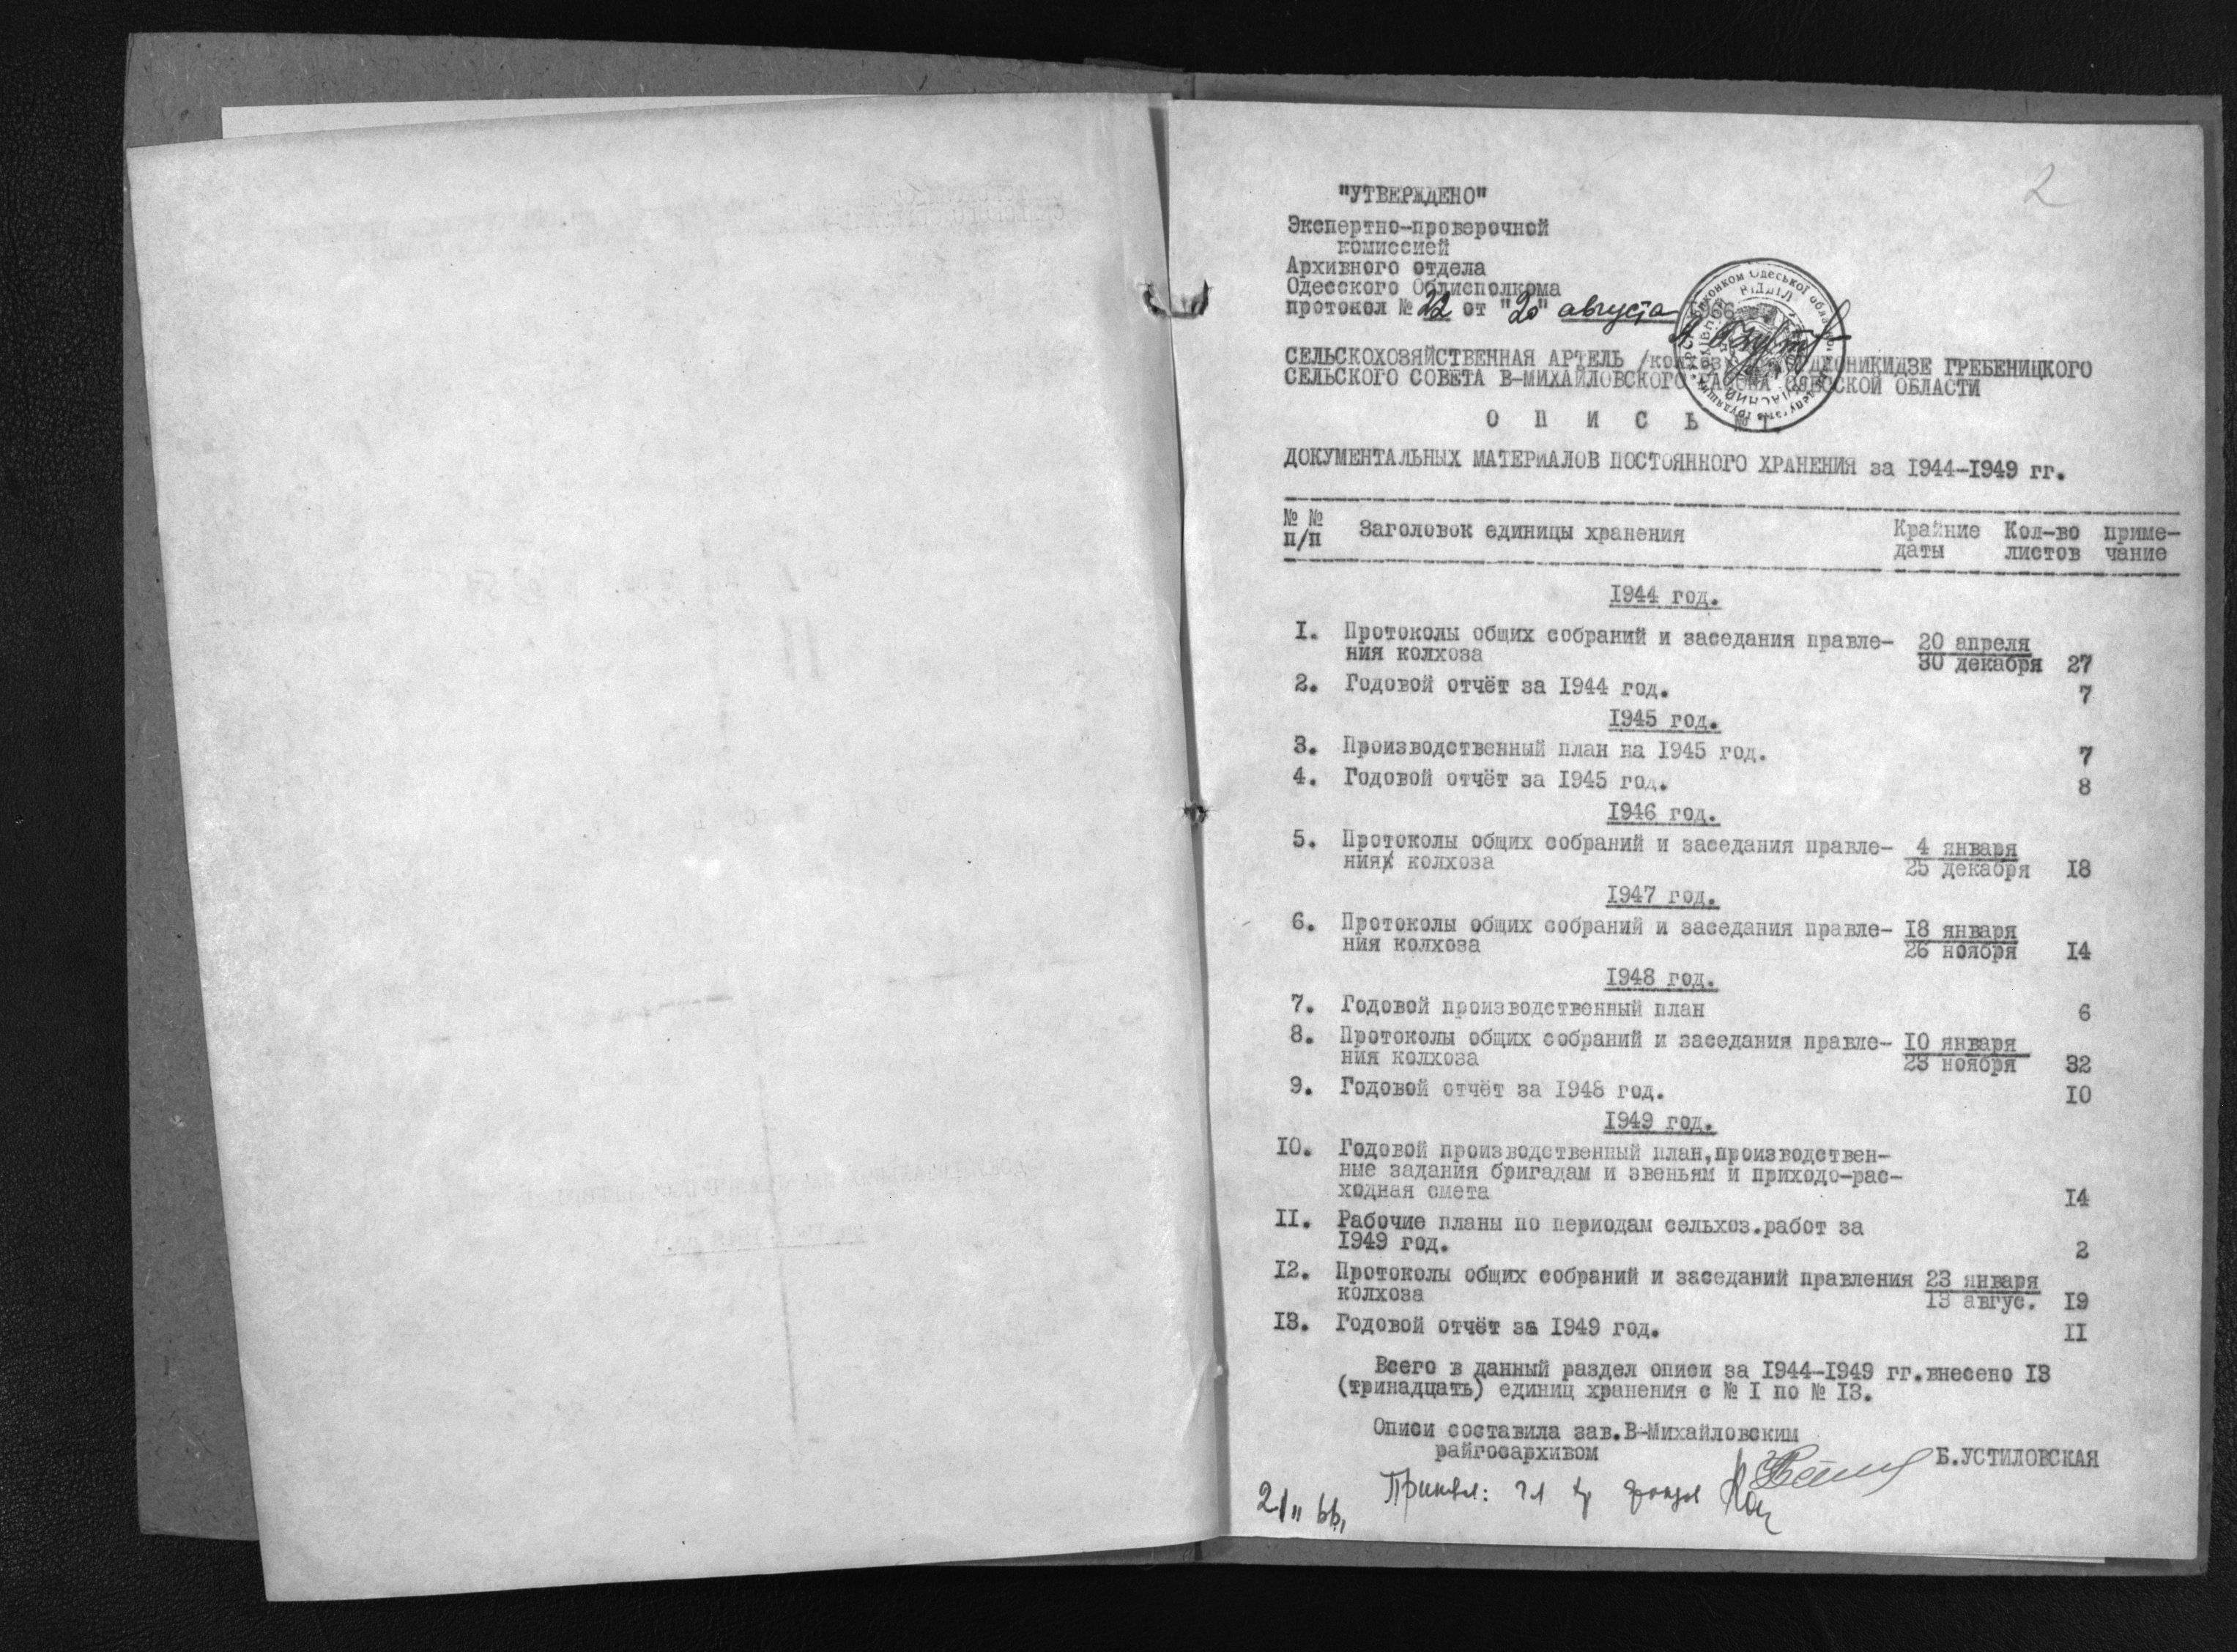 2
"УТВЕРЖДЕНО"
Экспертно-проверочной
комиссией
Архивного отдела
Одесского Облисполкома
протокол № 22 от "20" августа 1966
СЕЛЬСКОХОЗЯЙСТВЕННАЯ АРТЕЛЬ ГРЕБЕНИЦКОГО
СЕЛЬСКОГО СОВЕТА В-МИХАЙЛОВСКОГО РАЙОНА ОДЕССКОЙ ОБЛАСТИ
О П И С Ь № I.
ДОКУМЕНТАЛЬНЫХ МАТЕРИАЛОВ ПОСТОЯННОГО ХРАНЕНИЯ за I944-I949 гг.
№ № Заголовок единицы хранения Крайние Кол-во приме-
п/п даты листов чание
I944 год.
I. Протоколы общих собраний и заседания правле- 20 апреля
ния колхоза 30 декабря 27
2. Годовой отчёт за I944 год. 7
I945 год.
3. Производственный план на I945 год. 7
4. Годовой отчёт за I945 год. 8
I946 год.
5. Протоколы общих собраний и заседания правле- 4 января
ния колхоза 25 декабря I8
I947 год.
6. Протоколы общих собраний и заседания правле- I8 января
ния колхоза 26 ноября I4
I948 год.
7. Годовой производственный план 6
8. Протоколы общих собраний и заседания правле- I0 января
ния колхоза 23 ноября 32
9. Годовой отчёт за I948 год. I0
I949 год.
I0. Годовой производственный план,производствен-
ные задания бригадам и звеньям и приходо-рас-
ходная смета I4
II. Рабочие планы по периодам сельхоз.работ за
I949 год. 2
I2. Протоколы общих собраний и заседаний правления 23 января
колхоза I3 авгус. I9
I3. Годовой отчёт за I949 год. II
Всего в данный раздел описи за I944-I949 гг.внесено I3
(тринадцать) единиц хранения с № I по № I3.
Описи составила зав.В-Михайловским
райгосархивом Б.УСТИЛОВСКАЯ